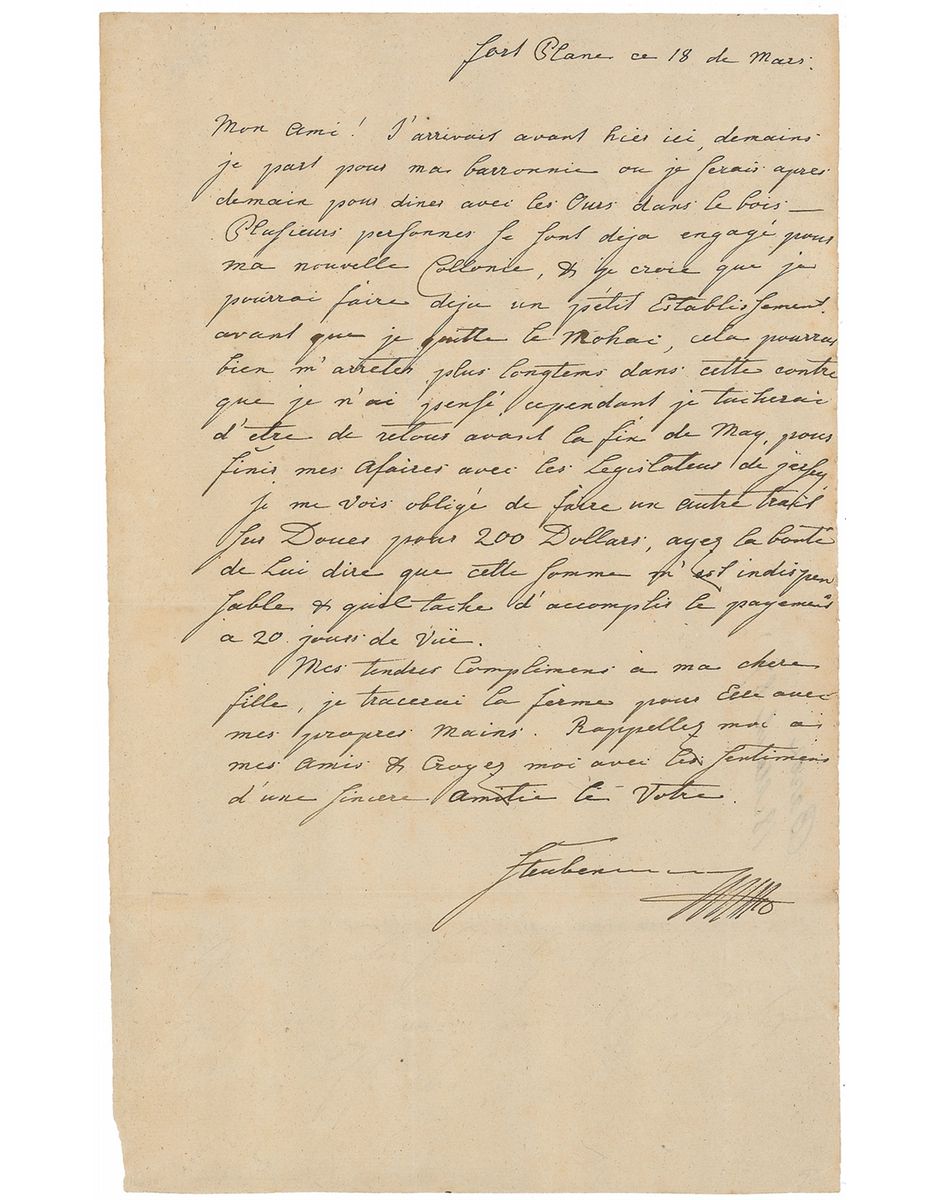 fort Plane ce 18 de Mars.
Mon Ami! J'arrivait avant hier ici, demains
je part pour ma barronnie ou je serais apres
demain pour diner avec les Ours dans le bois —
Plusieurs personnes se sont deja engagé pour
ma nouvelle Collonie, & je croie que je
pourrai faire deja un pétit Etablissement.
avant que je quitte le Mohac, cela pourrai
bien m'arreter plus longtems dans cette contre
que je n'ai pensé, cependant je tacherai
d'etre de retour avant la fin de May, pour
finir mes Afaires avec les Legislateur de jersey
je me vois obligé de faire un autre trait
sur Doues pour 200 Dollars, ayez la bonté
de Lui dire que cette somme m'est indispen
sable & quil tache d'accomplir le payement
a 20 jours de Vüe.
Mes tendres Complimens à ma chere
fille, je tracerai la ferme pour Elle avec
mes propres Mains. Rappellez moi a
mes Amis & Croyez moi avec les sentimens
d'une sincere Amitie le Votre.
Steuben